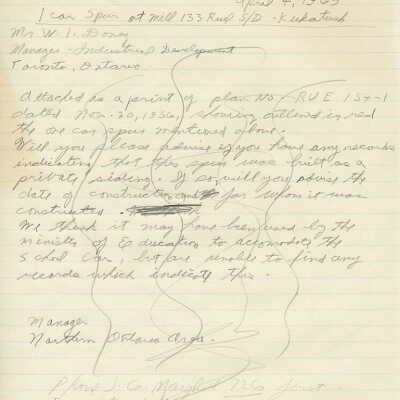 April 4, 1963
1 car Spur at Mill 133 Ruel S/D - Kukatush
Mr. W. I. Doney
Manager - Industrial Development
Toronto, Ontario.
Attached is a print of plan No RUE 157-1
dated Nov. 20, 1956, showing outlined in red
the one car spur mentioned above.
Will you please advise if you have any records
indicating that this spur was built as a
private siding. If so, will you advise the
date of construction and for whom it was
constructed.
We think it may have been used by the
Minister of Education to accomodate the
School Car, but are unable to find any
records which indicate this.
Manager
Northern Ontario Area.